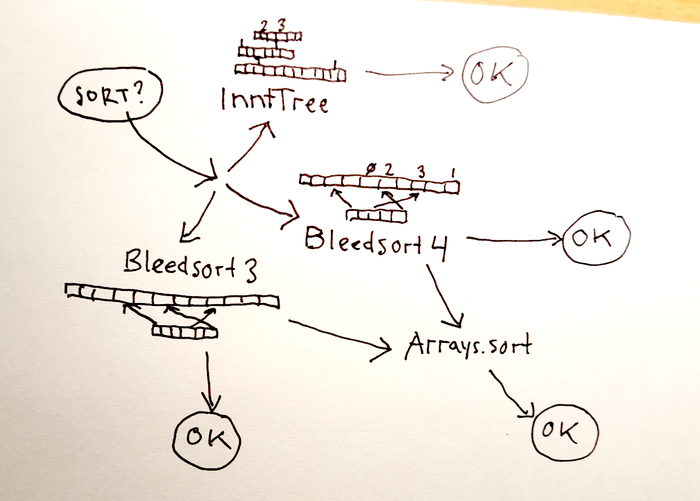 2 3
SORT?
InntTree
OK
0 2 3 1
Bleedsort 4
OK
Bleedsort 3
Arrays.sort
OK
OK